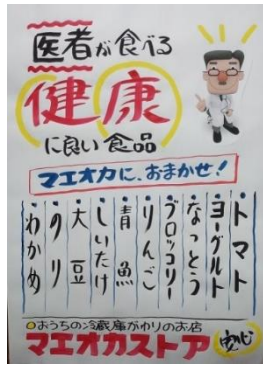 医者が食べる
健康
に良い食品
マエオカに、おまかせ!
トマト
ヨーグルト
なっとう
ブロッコリー
りんご
青魚
しいたけ
大豆
のり
わかめ
おうちの冷蔵庫がわりのお店
マエオカストア